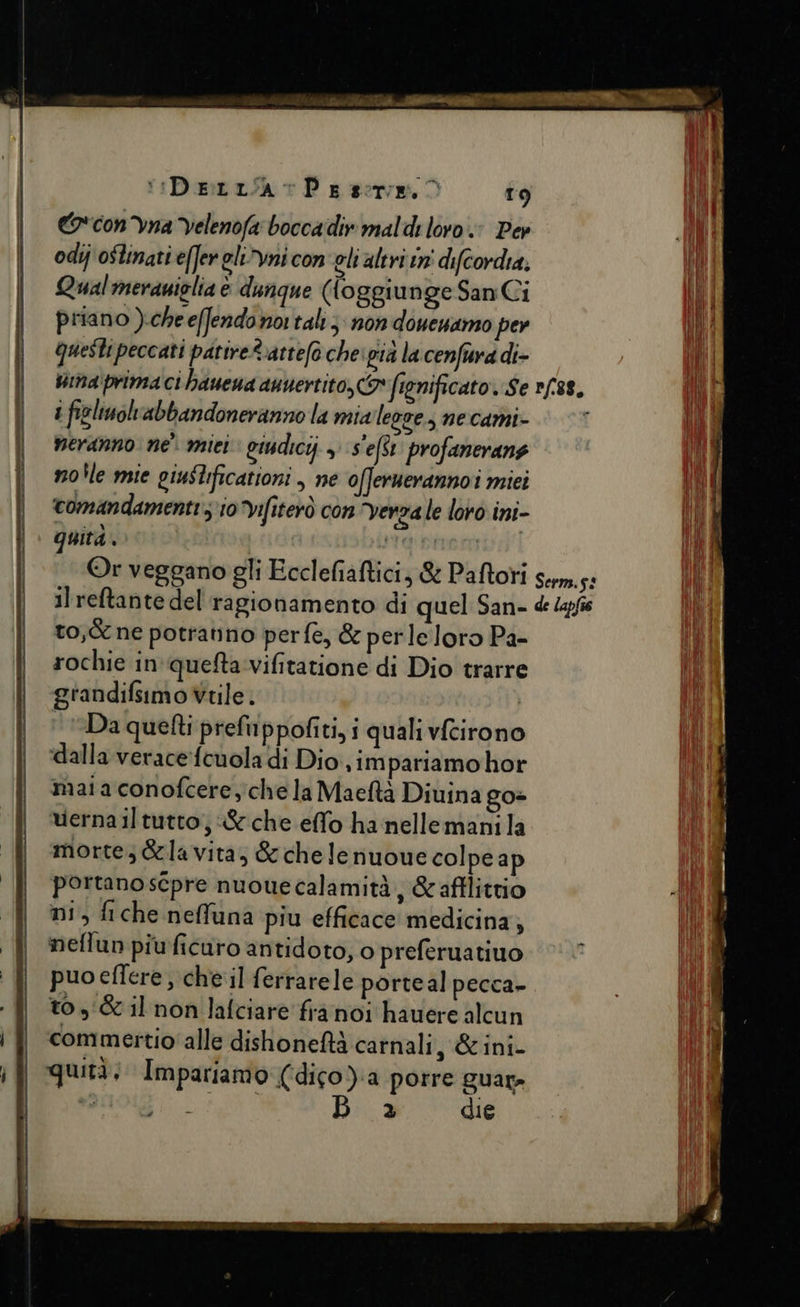 DELLA PESTE. 19
& con vna velenosa bocca dir mal di loro. Per
odij ostinati esser gli vni con gli altri in discordia.
Qual merauiglia è dunque (soggiunge San Ci
priano) che essendo noi tali; non doueuamo per
questi peccati patire? atteso che già la censura di-
uina prima ci haueua auuertito, & significato. Se
psf.88.
i figliuoli abbandoneranno la mia legge, ne cami-
neranno ne' miei giudicij, s'essi profaneranno
nolle mie giustificationi, ne osserueranno i miei
comandamenti; io visiterò con verga le loro ini-
quità.
Or veggano gli Ecclesiastici, & Pastori
Serm. 5:
il restante del ragionamento di quel San-
de lapsis
to, & ne potranno per se, & per le loro Pa-
rochie in questa visitatione di Dio trarre
grandissimo vtile.
Da questi presuppositi, i quali vscirono
dalla verace scuola di Dio, impariamo hor
mai a conoscere, che la Maestà Diuina go-
uerna il tutto, & che esso ha nelle mani la
morte, & la vita, & che le nuoue colpe ap
portano sēpre nuoue calamità, & afflittio
ni, si che nessuna piu efficace medicina,
nessun piu sicuro antidoto, o preseruatiuo
puo essere, che il serrare le porte al pecca-
to, & il non lasciare fra noi hauere alcun
commertio alle dishonestà carnali, & ini-
quità. Impariamo (dico) a porre guar-
B 2 die